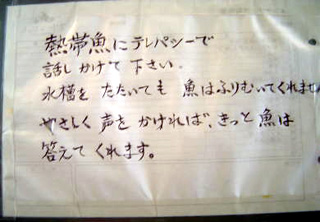 熱帯魚にテレパシーで
話しかけて下さい。
水槽をたたいても 魚はふりむいてくれませ
やさしく声をかければ、きっと魚は
答えてくれます。